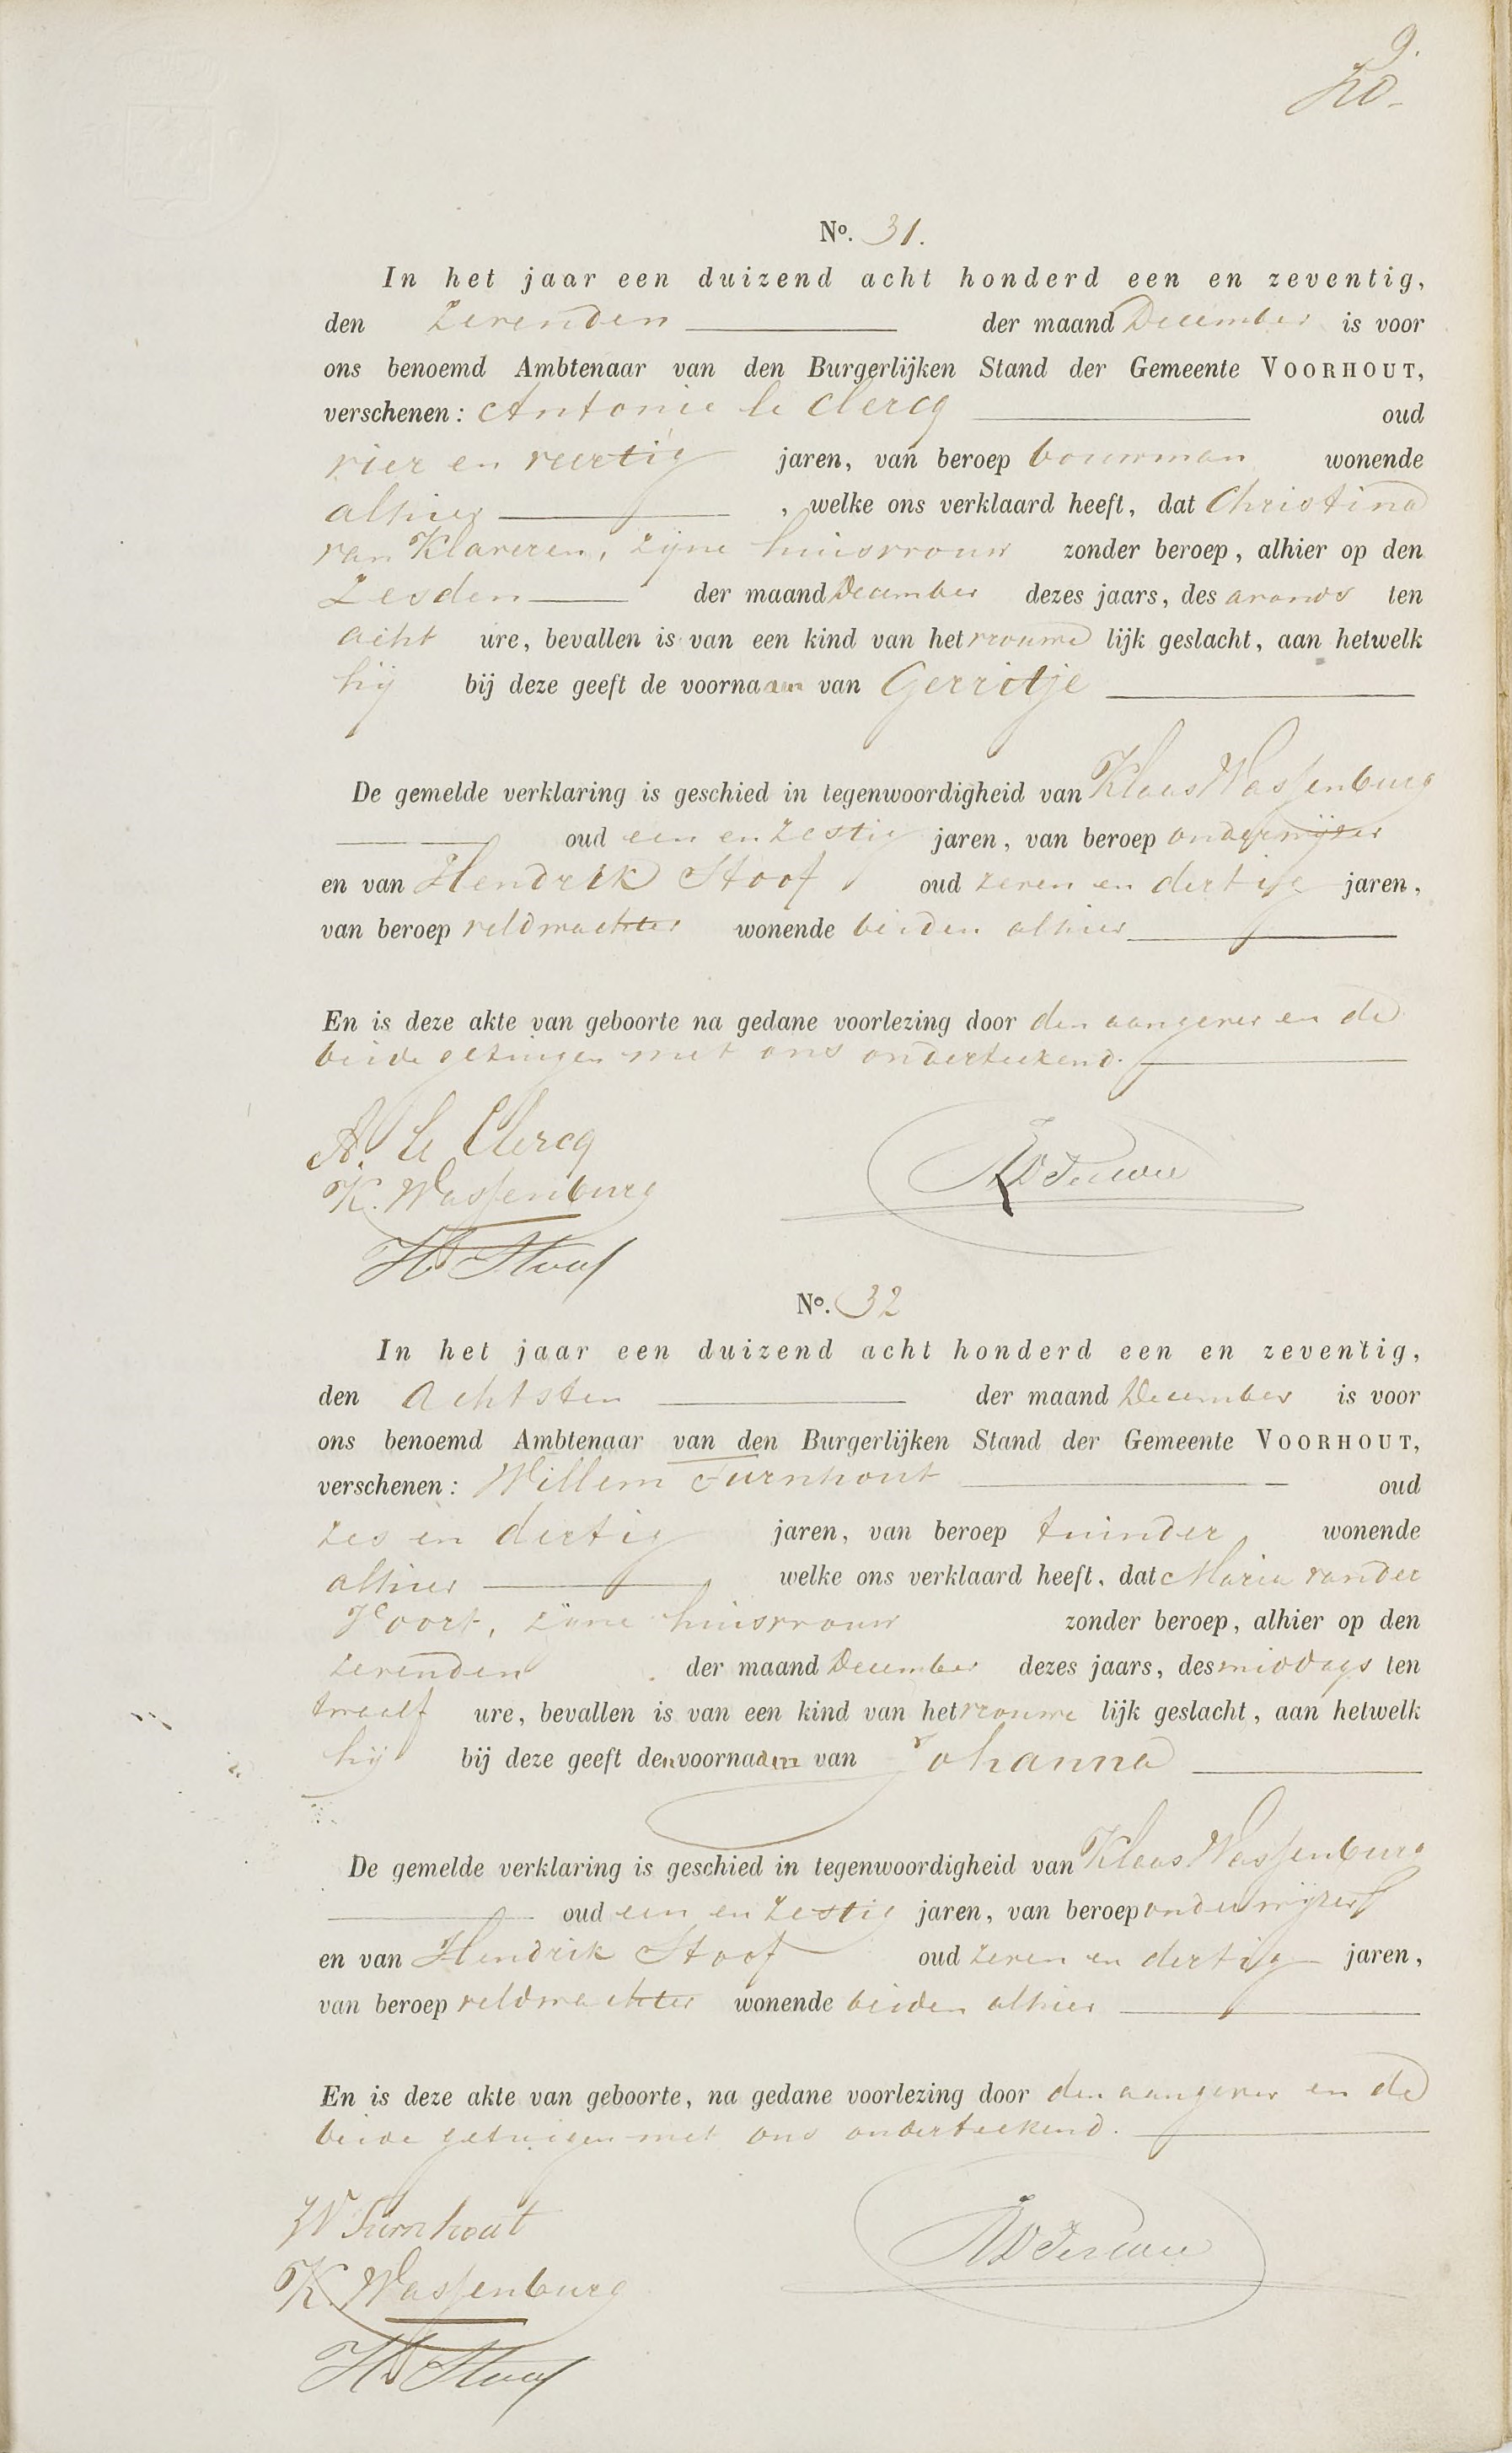 9.
No. 31.
In het jaar een duizend acht honderd een en zeventig,
den zevenden der maand December is voor
ons benoemd Ambtenaar van den Burgerlijken Stand der Gemeente VOORHOUT,
verschenen: Antonie le Clercq oud
vier en veertig jaren, van beroep bouwman wonende
alhier, welke ons verklaard heeft, dat Christina
van Klaveren, zijne huisvrouw zonder beroep, alhier op den
zesden der maand December dezes jaars, des avonds ten
acht ure, bevallen is van een kind van het vrouwe lijk geslacht, aan hetwelk
hij bij deze geeft de voornaam van Gerritje
De gemelde verklaring is geschied in tegenwoordigheid van Klaas Wassenburg
oud een en zestig jaren, van beroep onderwijzer
en van Hendrik Stoof oud zeven en dertig jaren,
van beroep veldwachter wonende beiden alhier
En is deze akte van geboorte na gedane voorlezing door den aangever en de
beide getuigen met ons onderteekend.
A. le Clercq
K. Wassenburg
H Stoof
No. 32
In het jaar een duizend acht honderd een en zeventig,
den achtsten der maand December is voor
ons benoemd Ambtenaar van den Burgerlijken Stand der Gemeente VOORHOUT,
verschenen: Willem Turnhout oud
zes en dertig jaren, van beroep tuinder wonende
alhier welke ons verklaard heeft, dat Maria van der
Voort, zijne huisvrouw zonder beroep, alhier op den
zevenden der maand December dezes jaars, des middags ten
twaalf ure, bevallen is van een kind van het vrouwe lijk geslacht, aan hetwelk
hij bij deze geeft den voornaam van Johanna
De gemelde verklaring is geschied in tegenwoordigheid van Klaas Wassenburg
oud een en zestig jaren, van beroep onderwijzer
en van Hendrik Stoof oud zeven en dertig jaren,
van beroep veldwachter wonende beiden alhier
En is deze akte van geboorte, na gedane voorlezing door den aangever en de
beide getuigen met ons onderteekend.
W Turnhout
K. Wassenburg
H Stoof